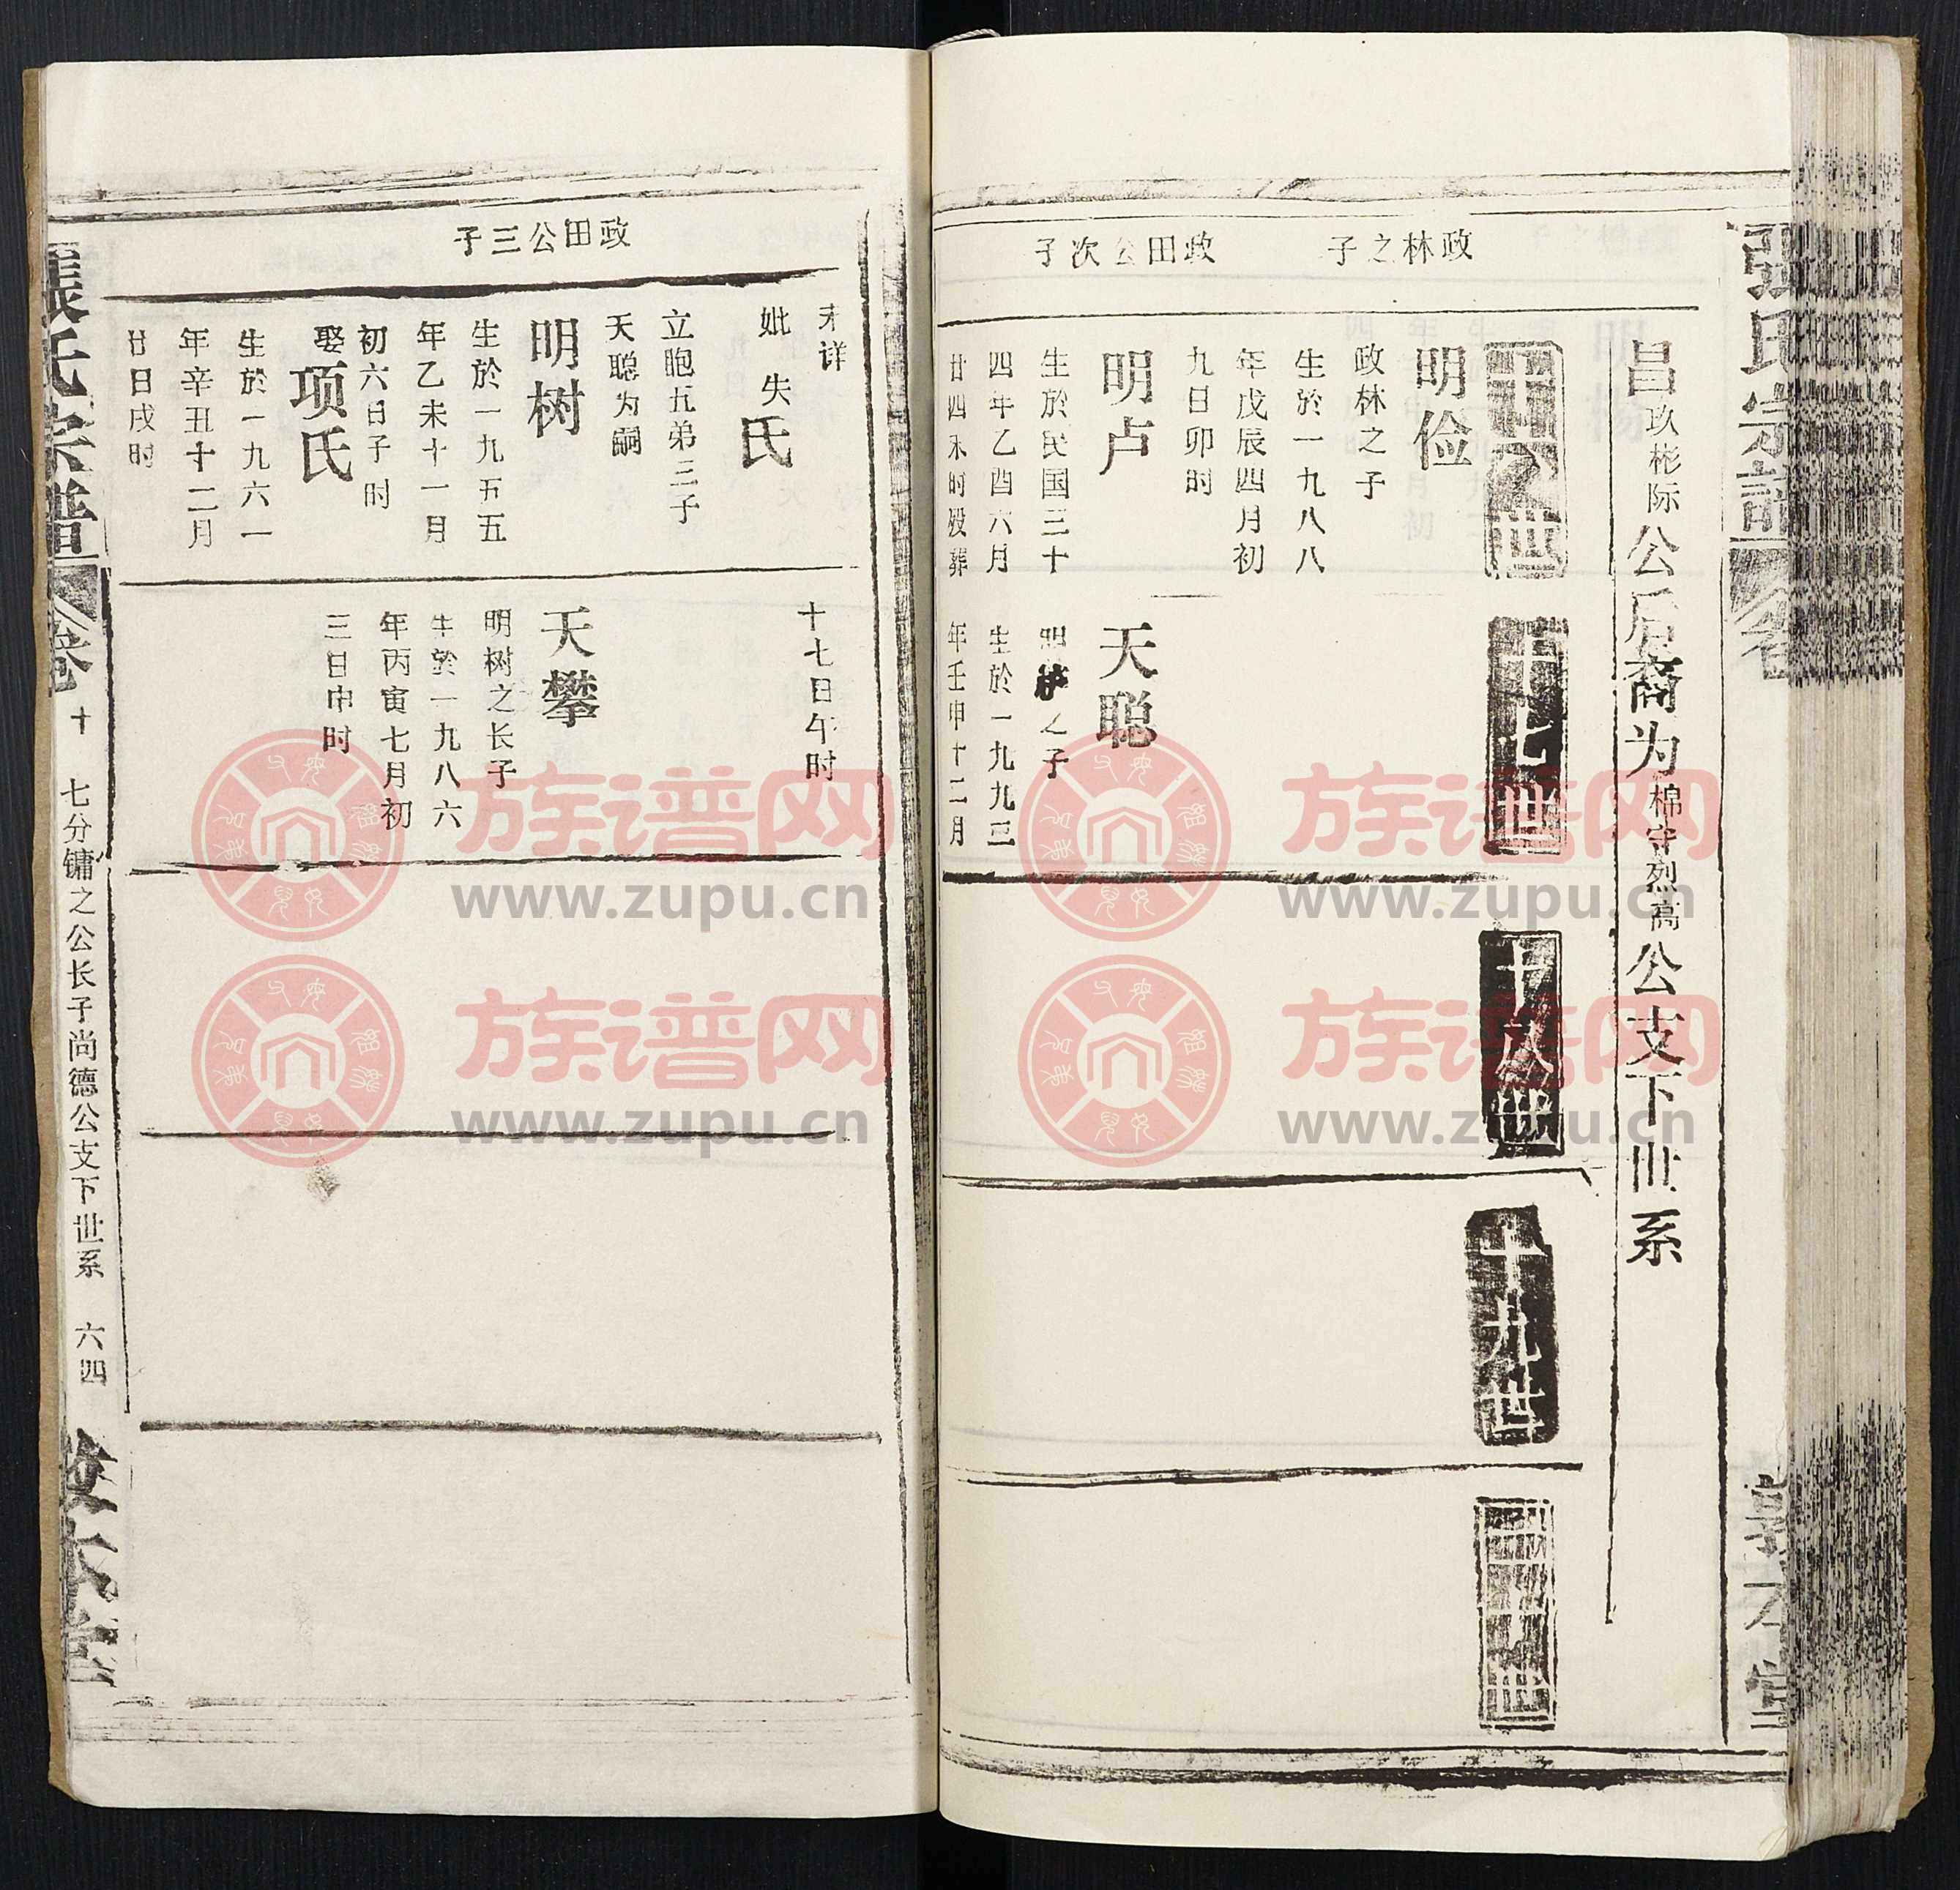 张氏宗譜
昌玖彬际公后裔为棉守烈高公支下世系
十六世
十七世
十八世
十九世
二十世
政林之子
明俭
政林之子
生於一九八八
年戊辰四月初
九日卯时
政田公次子
明卢
生於民国三十
四年乙酉六月
廿四未时殁葬
天聪
之子
生於一九九三
年壬申十二月
未详
妣失氏
立胞五弟三子
天聪为嗣
十七日午时
政田公三子
明树
生於一九五五
年乙未十一月
初六日子时
娶项氏
生於一九六一
年辛丑十二月
廿日戌时
天攀
明树之长子
生於一九八六
年丙寅七月初
三日申时
張氏宗譜
卷十
七分镛之公长子尚德公支下世系
六四
族谱网
www.zupu.cn
族谱网
www.zupu.cn
族谱网
www.zupu.cn
族谱网
www.zupu.cn